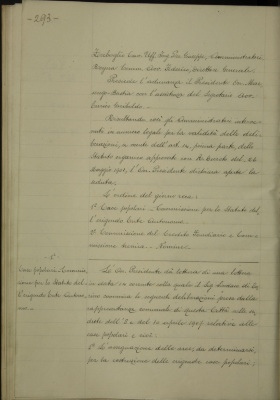 -293-
Cav. Uff. Ing. Giuseppe, Amministratori
Cav. Federico, Direttore Generale.
Presiede l'adunanza il Presidente On. Mar-
cav. coll'assistenza del Segretario avv.
Risultando così gli Amministratori interve-
nuti in numero legale per la validità delle deli-
berazioni, a mente dell'art. prima parte, dello
Statuto organico approvato con R. Decreto del
Maggio 1901, l'On. Presidente dichiara aperta la
seduta.
L'ordine del giorno reca:
1° Case popolari - Commissione per lo Statuto del-
l'erigendo Ente Autonomo.
2° Commissione del Credito Fondiario e Com-
missione - Nomine.
- 1° -
Case popolari. Commis-
sione per lo Statuto del-
l'erigendo Ente Autono-
mo.
L'On. Presidente dà lettura di una lettera
in data colla quale il Sig. Sindaco di To-
rino comunica le seguenti deliberazioni prese dalla
rappresentanza comunale di questa Città nelle se-
dute dell' 8 e del 10 aprile 1907 relative alle
case popolari, e cioè:
1° L'assegnazione delle aree, da determinarsi,
per la costruzione delle erigende case popolari;